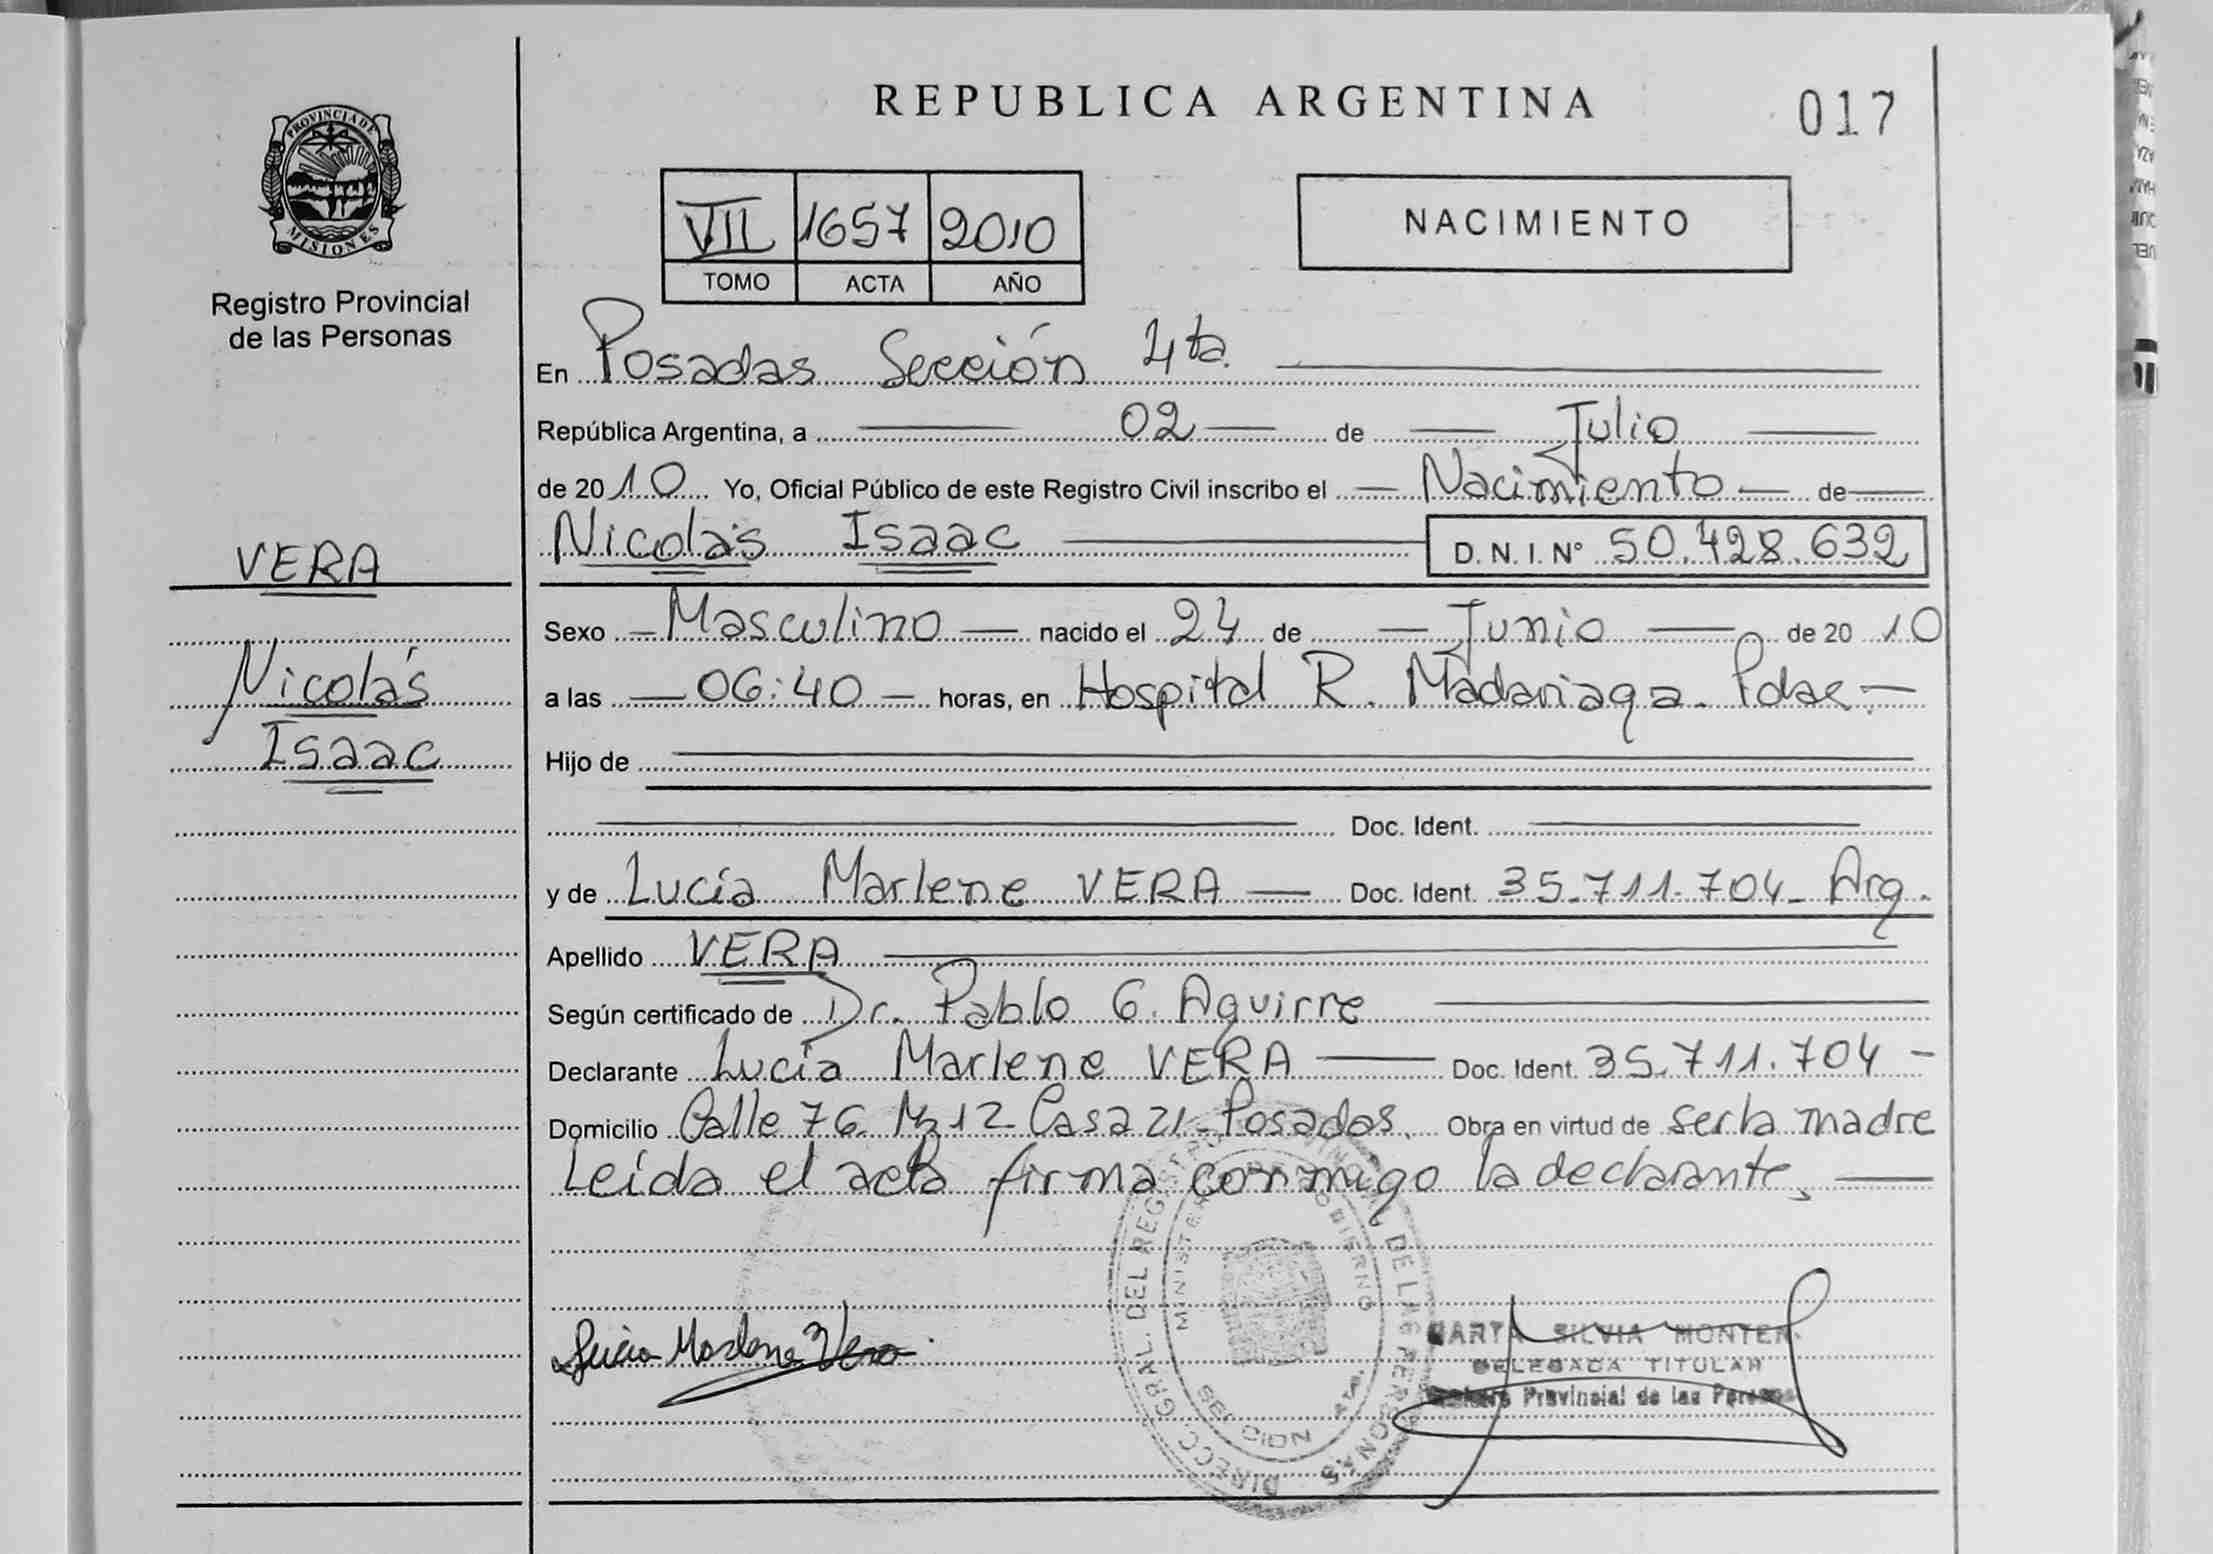 REPUBLICA ARGENTINA
017
PROVINCIA DE
MISIONES
Registro Provincial
de las Personas
VII 1657 2010
TOMO ACTA AÑO
NACIMIENTO
En Posadas Sección 4ta.
República Argentina, a 02 de Julio
de 2010 Yo, Oficial Público de este Registro Civil inscribo el Nacimiento de
Nicolás Isaac D. N. I. N° 50.428.632
VERA
Nicolás
Isaac
Sexo Masculino nacido el 24 de Junio de 2010
a las 06:40 horas, en Hospital R. Madariaga. Pdas.
Hijo de
Doc. Ident.
y de Lucía Marlene VERA Doc. Ident. 35.711.704 - Arg.
Apellido VERA
Según certificado de Dr. Pablo G. Aguirre
Declarante Lucía Marlene VERA Doc. Ident. 35.711.704 -
Domicilio Calle 76 Mz 12 Casa 21 - Posadas. Obra en virtud de ser la madre
Leída el acta firma conmigo la declarante.
Lucia Marlene Vera
DIRECC. GRAL. DEL REGISTRO PROVINCIAL DE LAS PERSONAS
MINISTERIO DE GOBIERNO
MARTA SILVIA MONTER
DELEGADA TITULAR
Provincial de las Personas